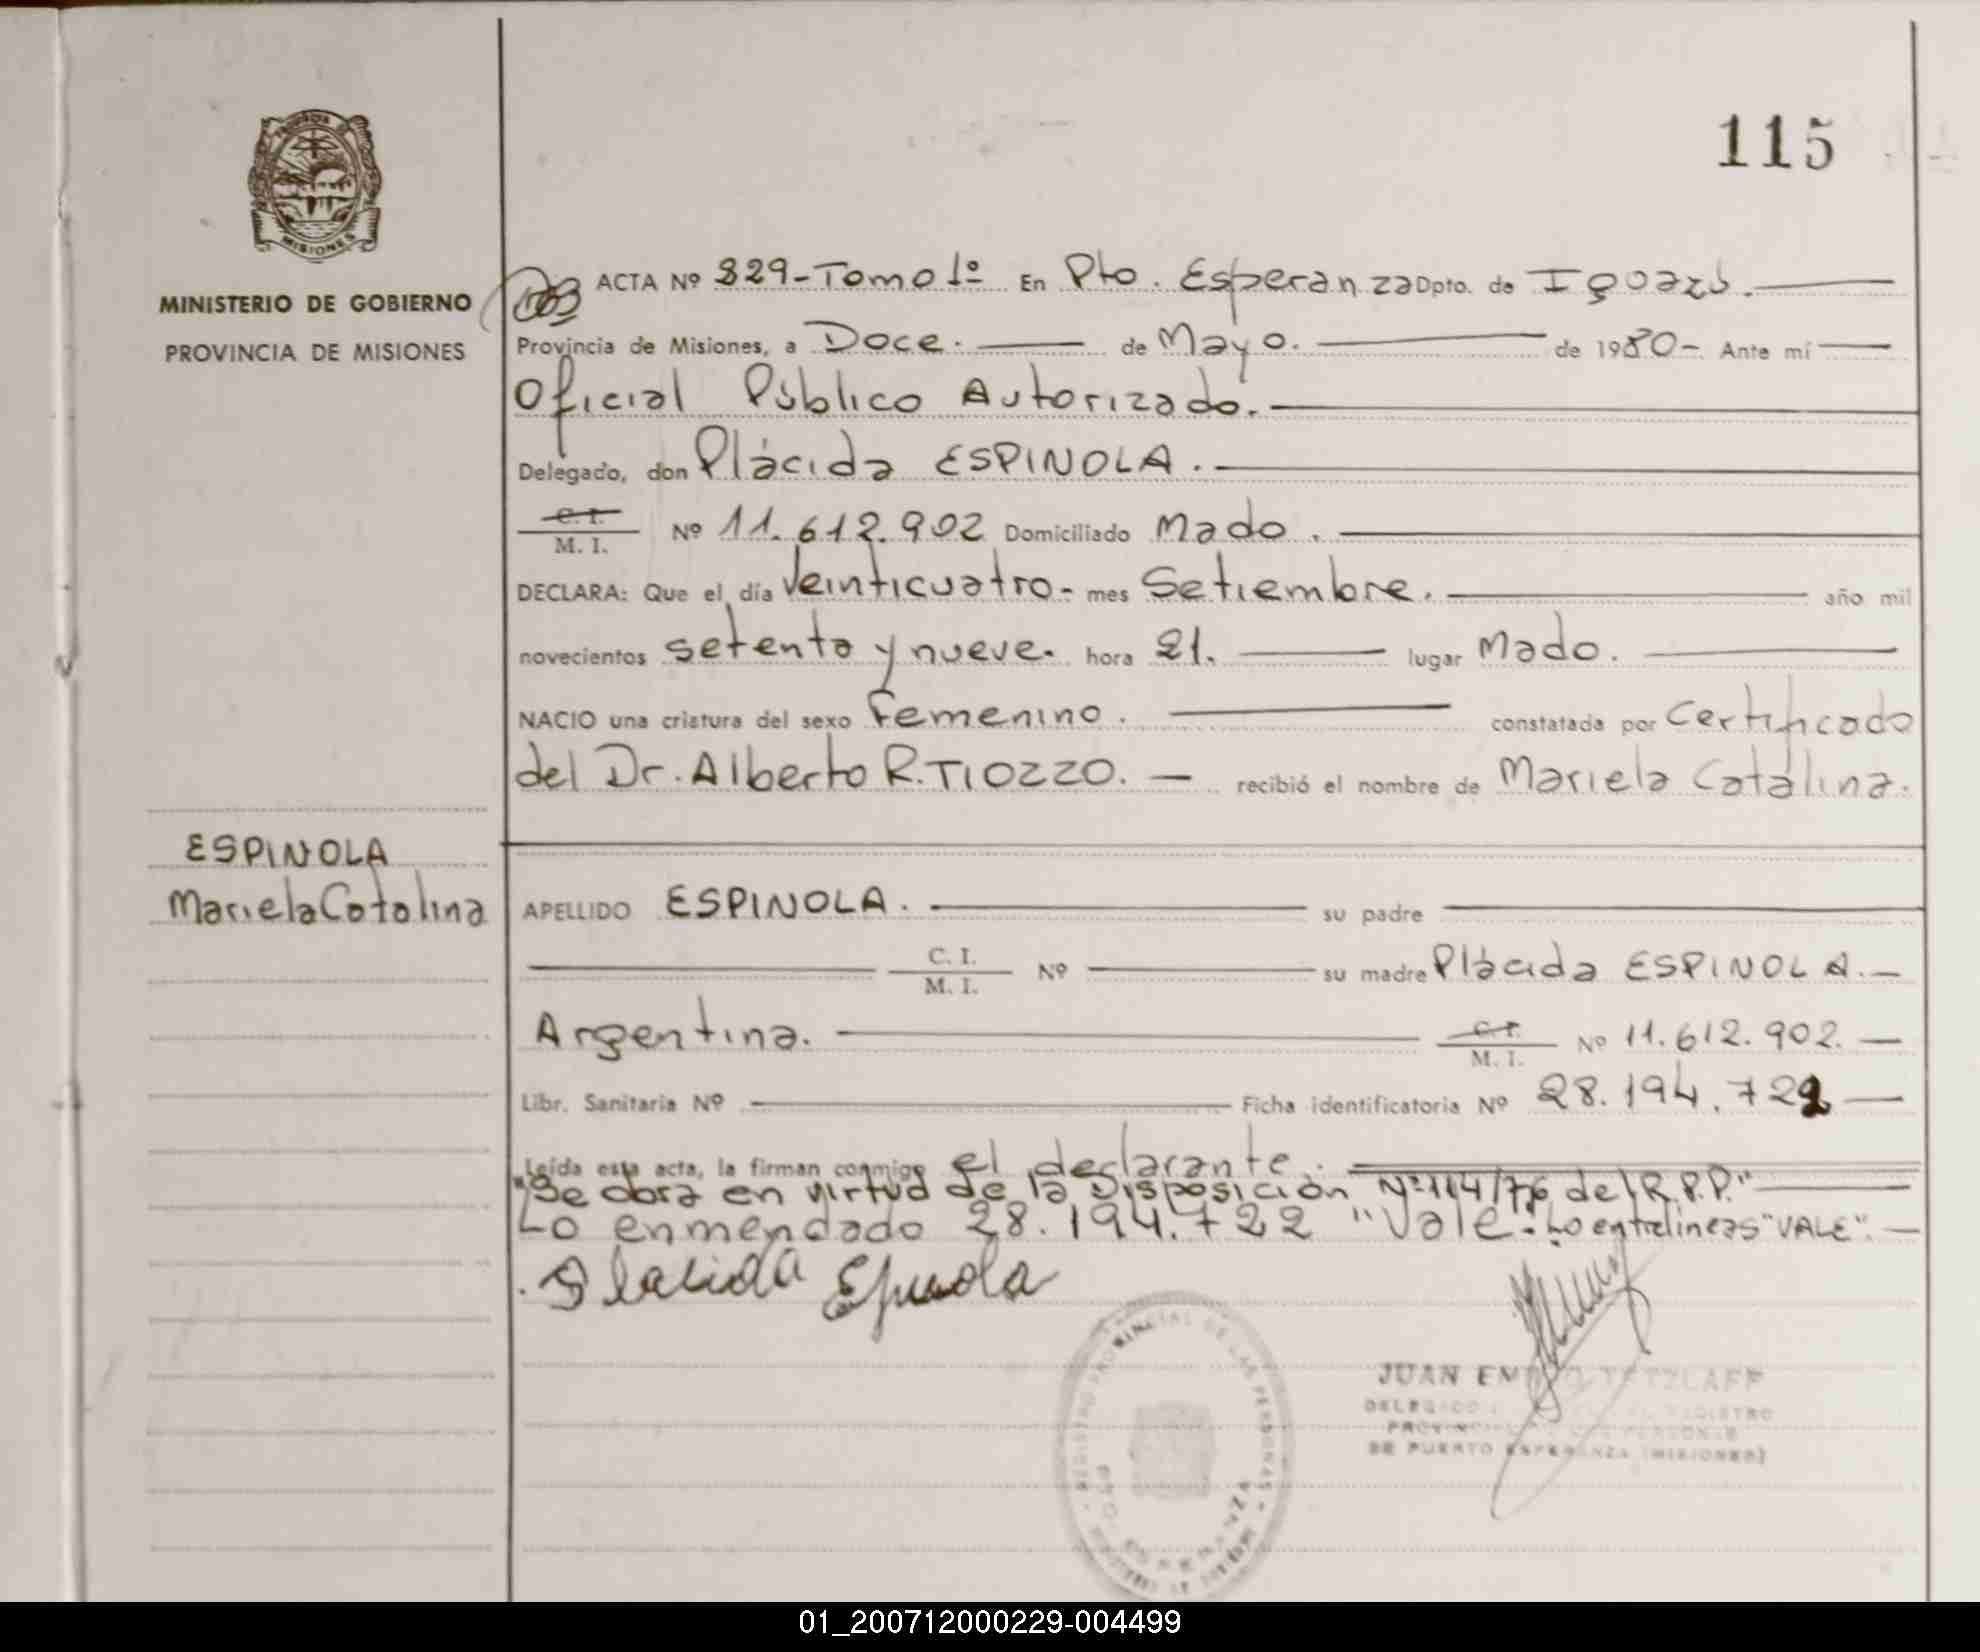 115
MINISTERIO DE GOBIERNO
PROVINCIA DE MISIONES
MISIONES
ACTA Nº 829-Tomo 1º En Pto. Esperanza Dpto. de Iguazú.
Provincia de Misiones, a Doce. de Mayo. de 1980- Ante mí
Oficial Público Autorizado.
Delegado, don Plácida ESPINOLA.
C. I.
M. I. Nº 11.612.902 Domiciliado Mado.
DECLARA: Que el día Veinticuatro- mes Setiembre. año mil
novecientos setenta y nueve. hora 21. lugar Mado.
NACIO una criatura del sexo Femenino. constatada por Certificado
del Dr. Alberto R. TIOZZO. recibió el nombre de Mariela Catalina.
ESPINOLA
Mariela Catalina
APELLIDO ESPINOLA. su padre
C. I.
M. I. Nº su madre Plácida ESPINOLA.
Argentina. C. I.
M. I. Nº 11.612.902.
Libr. Sanitaria Nº Ficha identificatoria Nº 28.194.722
Leída esta acta, la firman conmigo el declarante.
"Se obra en virtud de la Disposición Nº 114/76 del R.P.P."
Lo enmendado 28.194.722 "Vale. Lo entrelineas "VALE".
Placida Espinola
REGISTRO PROVINCIAL DE LAS PERSONAS
JUAN EMILIO TETZLAFF
DELEGADO REGISTRO
PROVINCIAL PERSONAS
DE PUERTO ESPERANZA (MISIONES)
01_200712000229-004499